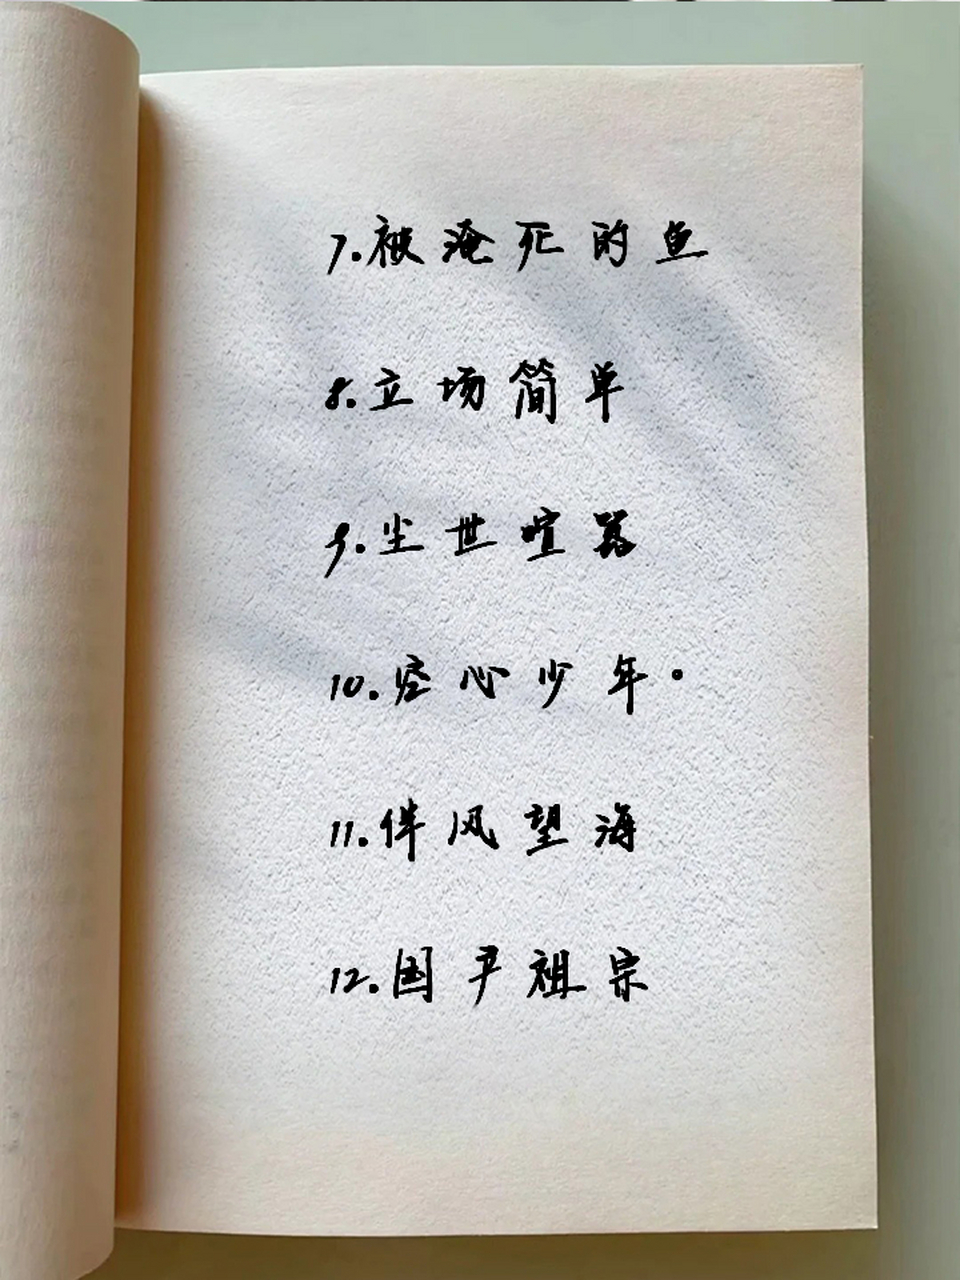 7.被淹死的鱼
8.立场简单
9.尘世喧嚣
10.空心少年。
11.伴风望海
12.国尹祖宗